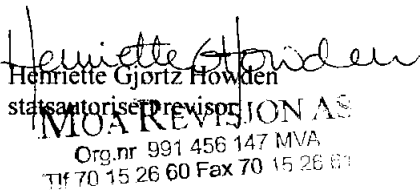 Henriette G Howden
Henriette Gjørtz Howden
statsautorisert revisor
MOA REVISJON AS
Org.nr 991 456 147 MVA
Tlf 70 15 26 60 Fax 70 15 26 61